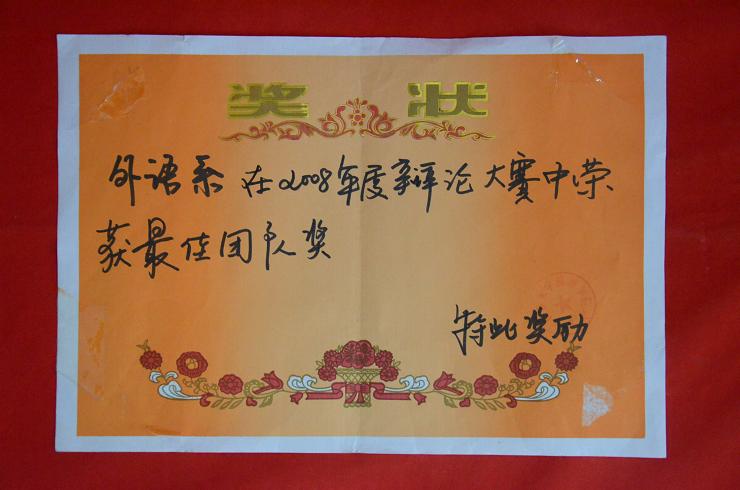 奖 状
外语系 在2008年度辩论大赛中荣
获最佳团队奖
特此奖励